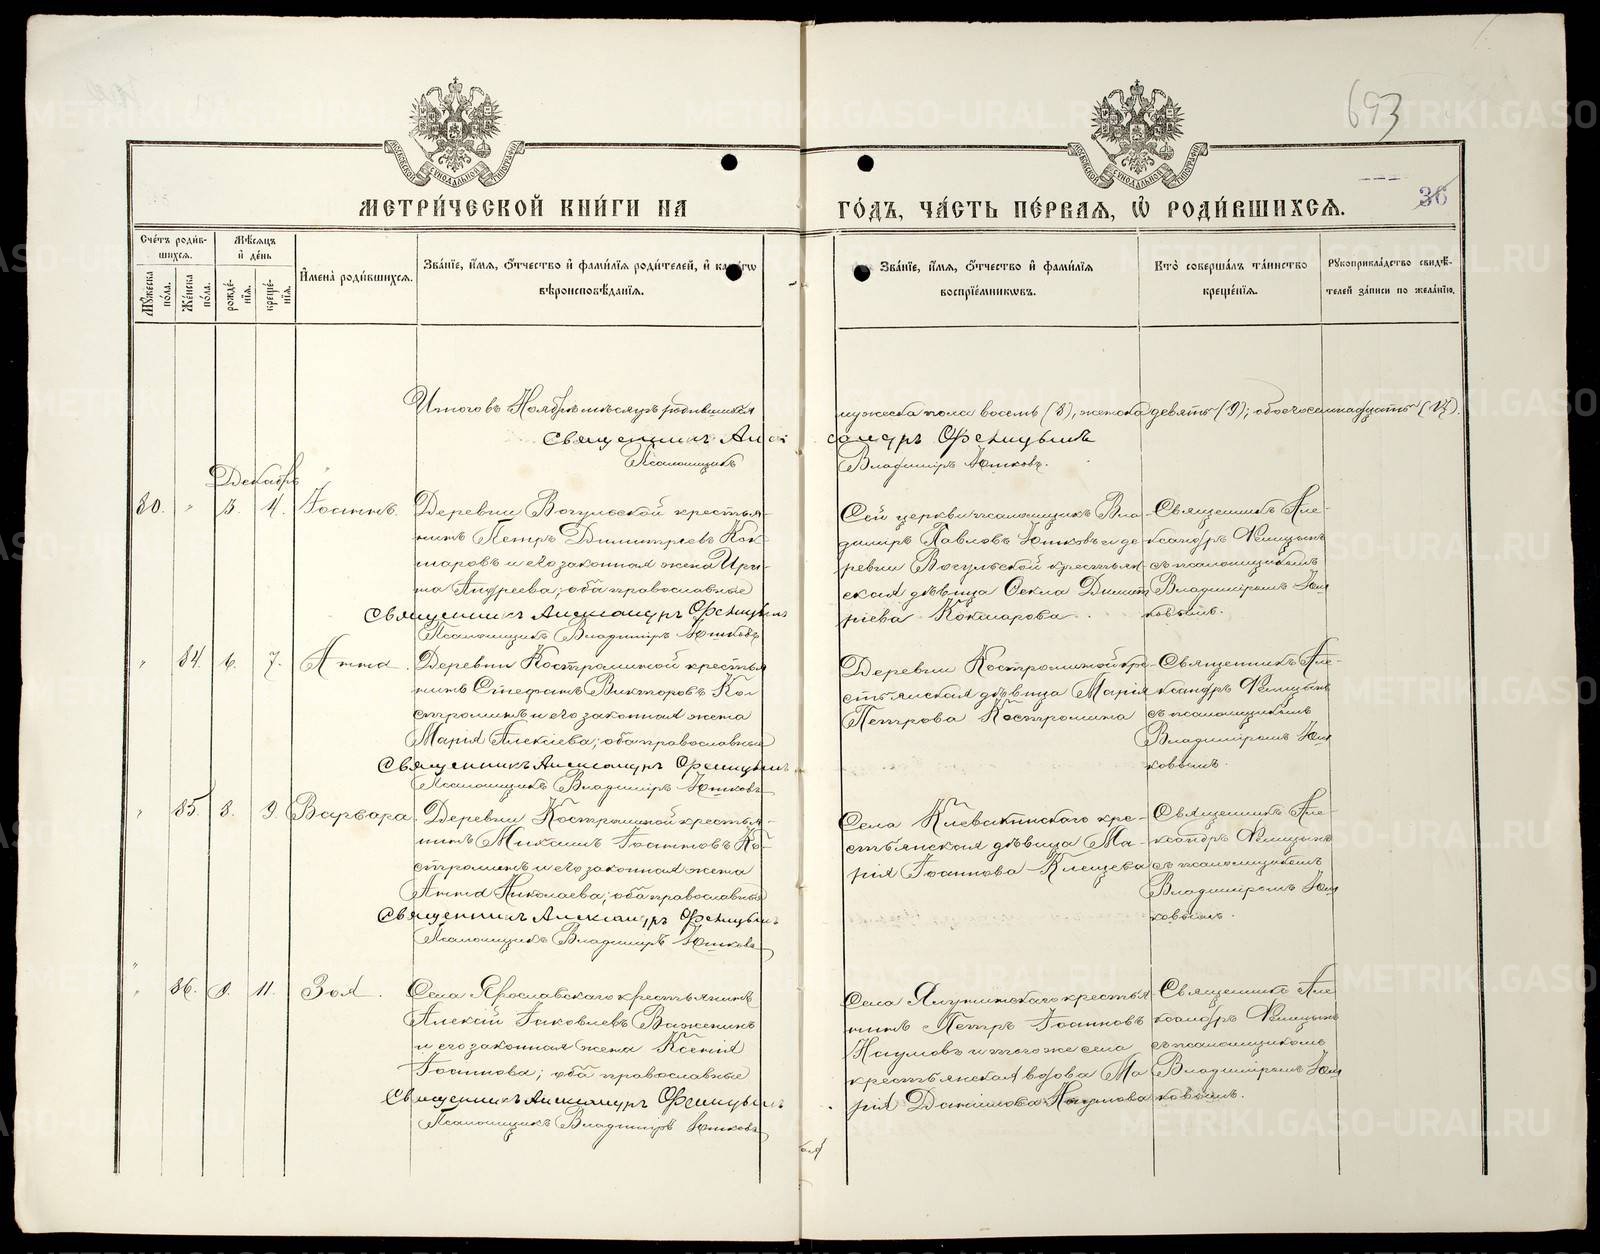 693
36
МОСКОВСКОЙ СѴНОДАЛЬНОЙ ТИПОГРАФІИ
МОСКОВСКОЙ СѴНОДАЛЬНОЙ ТИПОГРАФІИ
МЕТРИ́ЧЕСКОЙ КНИ́ГИ НА
ГО́ДЪ, ЧА́СТЬ ПЕ́РВАЯ, Ѡ РОДИ́ВШИХСЯ.
Сче́тъ роди́в-
шихся.
Мѣ́сяцъ
и҆ де́нь
Мꙋжеска по́ла.
Же́нска по́ла.
рожде́-
нїя.
креще́-
нїя.
И҆мена̀ роди́вшихся.
Зва́нїе, и҆́мя, о҆́тчество и҆ фами́лїя роди́телей, и҆ како́гѡ
вѣроисповѣ́данїя.
Зва́нїе, и҆́мя, о҆́тчество и҆ фами́лїя
воспрїе́мникѡвъ.
Кто̀ соверша́лъ та́инство
креще́нїя.
Рꙋкоприкла́дство свидѣ́-
телей за́писи по жела́нїю.
Итого въ Ноябрѣ мѣсяцѣ родившихся
мужеска пола восемь (8), женска девять (9); обоего семнадцать (17).
Священникъ Александръ Фелицынъ
Псаломщикъ
Владиміръ Юшковъ.
Декабрь
80. " 3. 4. Іоаннъ.
Деревни Вогульской крестья-
нинъ Петръ Димитріевъ Кок-
шаровъ и его законная жена Ири-
на Андреева; оба православные
Священникъ Александръ Фелицынъ
Псаломщикъ Владиміръ Юшковъ
Сей церкви псаломщикъ Вла-
диміръ Павловъ Юшковъ и де-
ревни Вогульской крестьян-
ская дѣвица Ѳекла Димит-
ріева Кокшарова.
Священникъ Але-
ксандръ Фелицынъ
съ псаломщикомъ
Владиміромъ Юш-
ковымъ.
" 84. 6. 7. Анна.
Деревни Костроминой крестья-
нинъ Стефанъ Викторовъ Ко-
строминъ и его законная жена
Марія Алексіева; оба православные
Священникъ Александръ Фелицынъ
Псаломщикъ Владиміръ Юшковъ
Деревни Костроминой кре-
стьянская дѣвица Марія
Петрова Костромина
Священникъ Але-
ксандръ Фелицынъ
съ псаломщикомъ
Владиміромъ Юш-
ковымъ.
" 85. 8. 9. Варвара.
Деревни Костроминой крестья-
нинъ Михаилъ Іоанновъ Ко-
строминъ и его законная жена
Анна Николаева; оба православные
Священникъ Александръ Фелицынъ
Псаломщикъ Владиміръ Юшковъ
Села Клевакинскаго кре-
стьянская дѣвица Ма-
рія Іоаннова Клещева
Священникъ Але-
ксандръ Фелицынъ
съ псаломщикомъ
Владиміромъ Юш-
ковымъ.
" 86. 9. 11. Зоя.
Села Ярославскаго крестьянинъ
Алексій Іаковлевъ Важенинъ
и его законная жена Ксенія
Іоаннова; оба православные
Священникъ Александръ Фелицынъ
Псаломщикъ Владиміръ Юшковъ
Села Ялунинскаго крестья-
нинъ Петръ Іоанновъ
Наумовъ и того же села
крестьянская вдова Ма-
рія Даніилова Наумова
Священникъ Але-
ксандръ Фелицынъ
съ псаломщикомъ
Владиміромъ Юш-
ковымъ.
METRIKI.GASO-URAL.RU